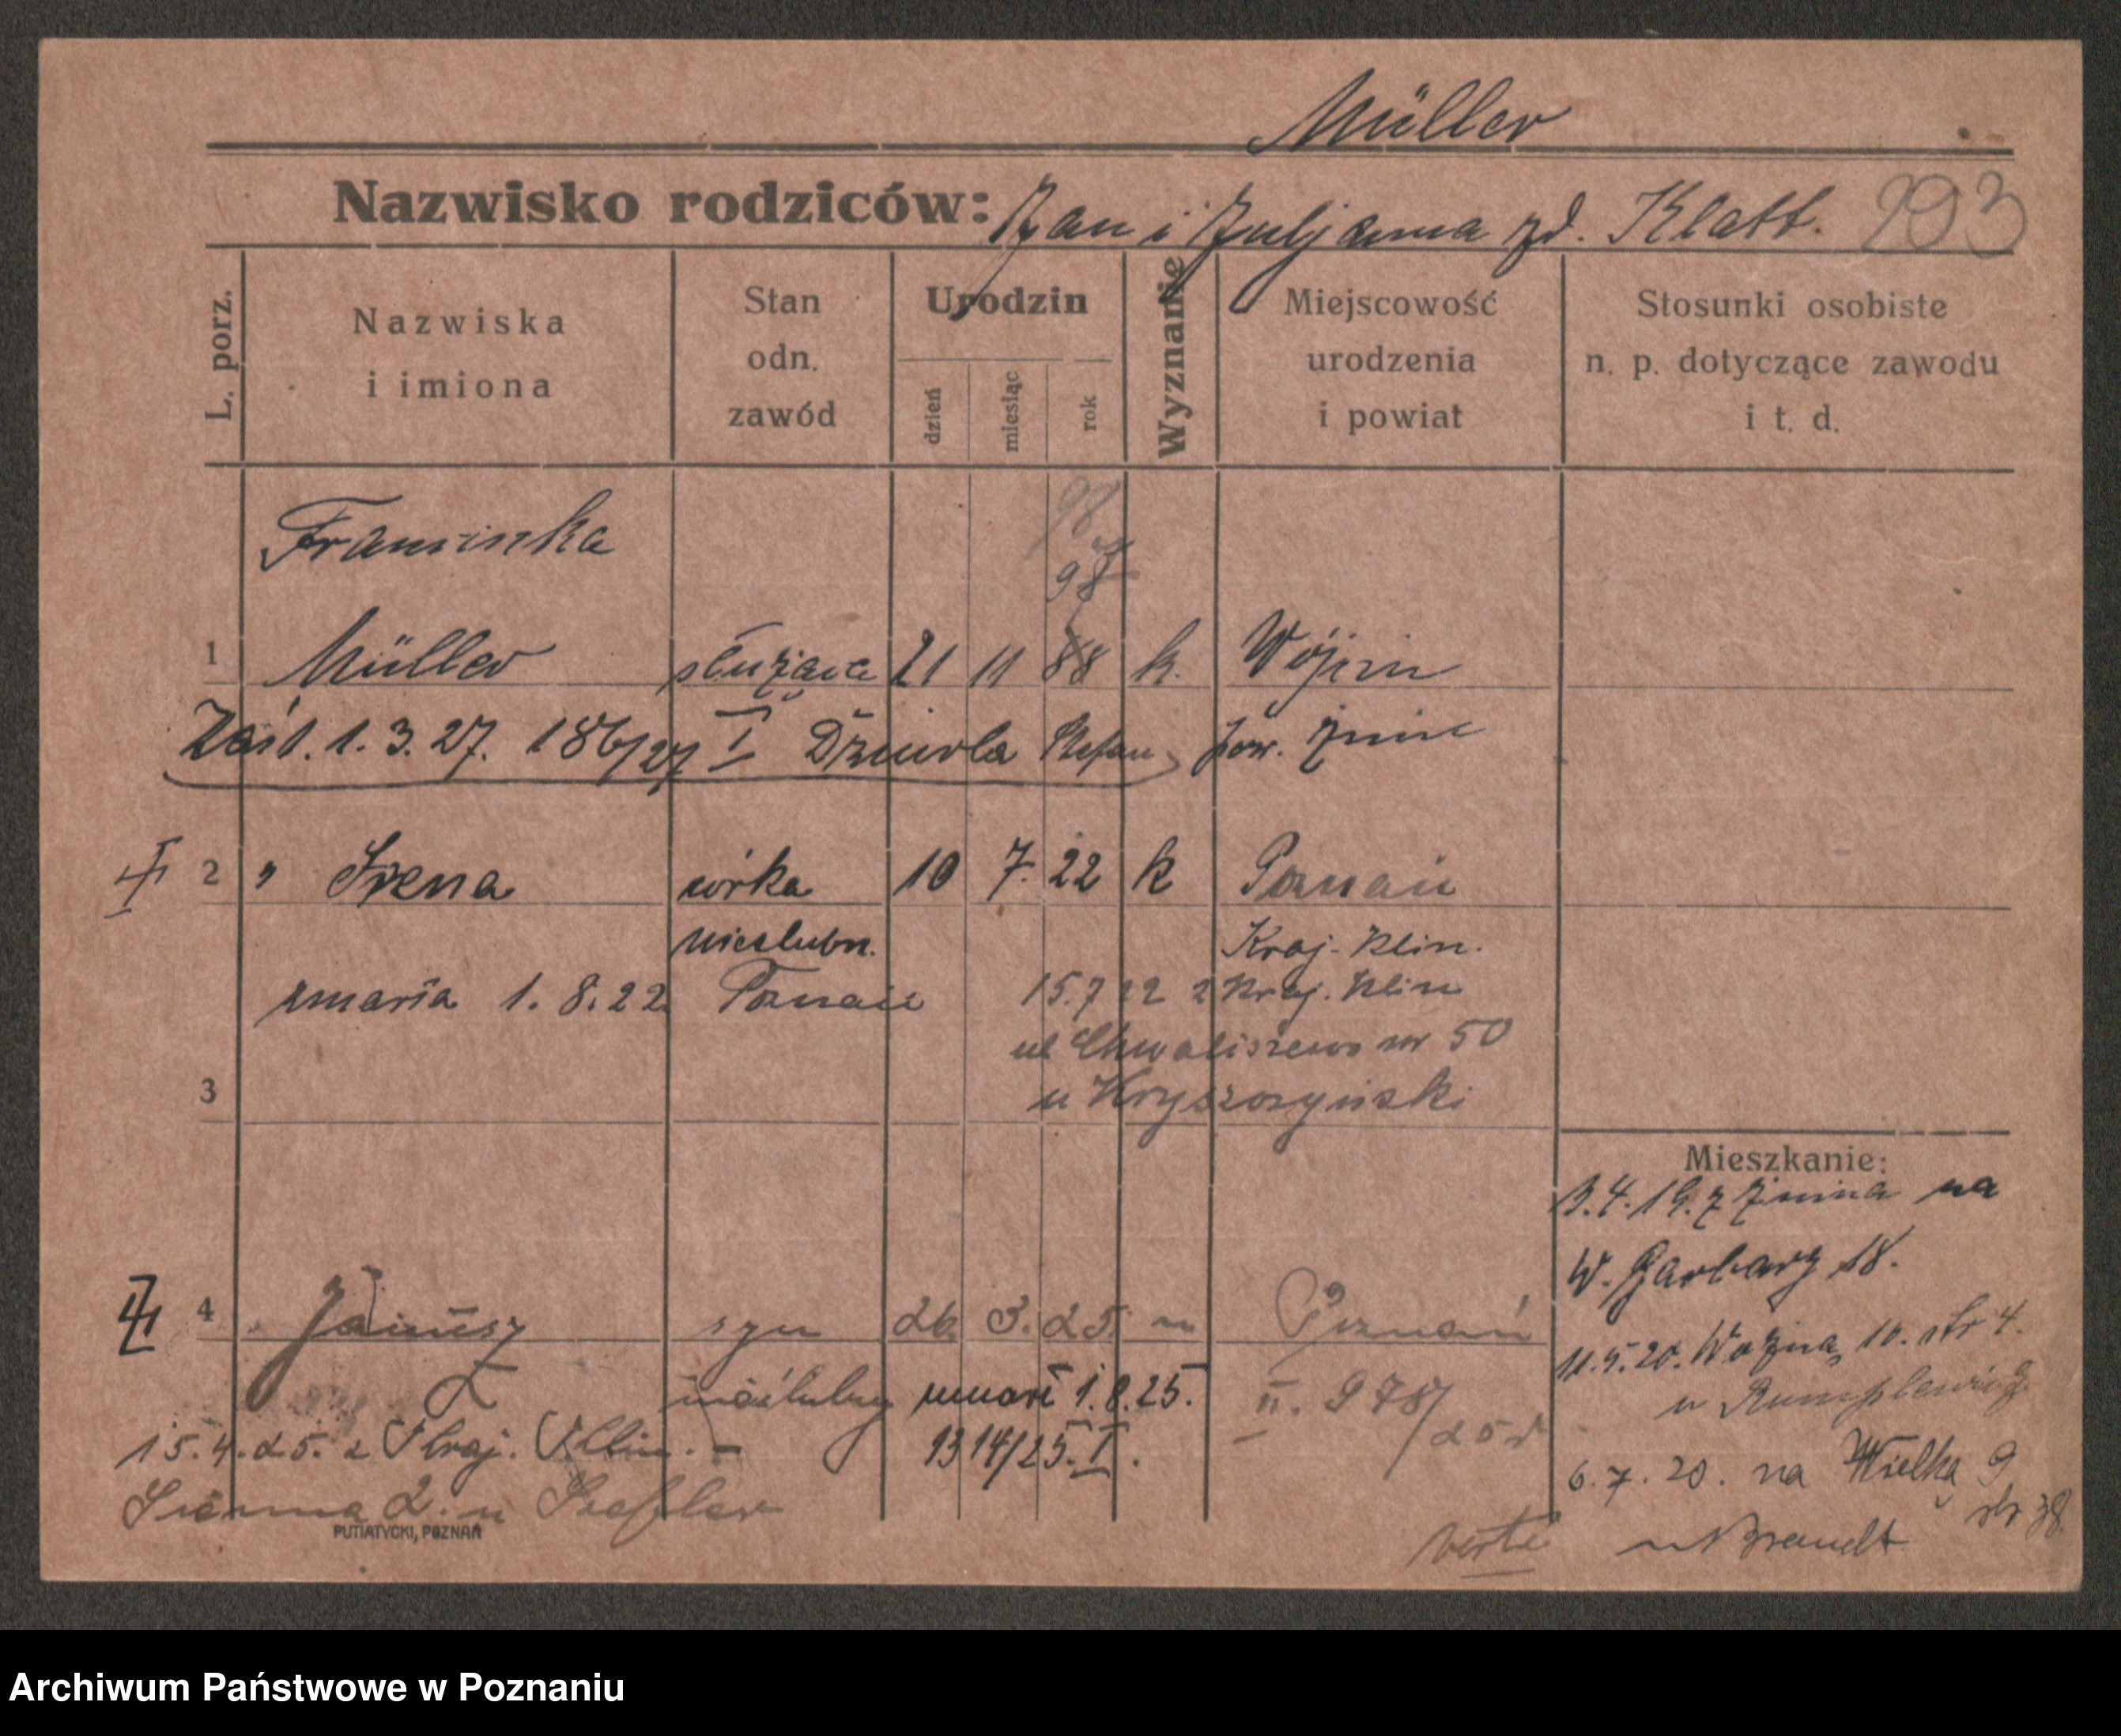 Müller
Nazwisko rodziców: Jan i Juljanna zd. Klatt. 293
L. porz.
Nazwiska
i imiona
Stan
odn.
zawód
Urodzin
dzień
miesiąc
rok
Wyznanie
Miejscowość
urodzenia
i powiat
Stosunki osobiste
n. p. dotyczące zawodu
i t. d.
Franciszka
98
97
1 Müller służąca 21 11 88 k. Wójcin
Zaśl. 1.3.27. 186/27 I Stefan pow. Żnin
2 " Irena córka 10 7. 22 k Poznań
nieślubn. Kraj. Klin.
zmarła 1.8.22 Poznań 15.7 22 z Kraj. Klin
ul Chwaliszewo nr 50
u
3
Mieszkanie:
3.4.19. z Żnina na
W. Garbary 18.
4 Janusz syn 26. 3. 25. Poznań
11.5.20. Woźna 10. str 4.
nieślubny zmarł 1.8.25. II. 978/25
u
15.4.25. z Kraj. Klin. - 1314/25. I.
6.7.20. na Wielką 9
Sienna 2. u Szefler
u Brandt
verte
PUTIATYCKI, POZNAŃ
Archiwum Państwowe w Poznaniu